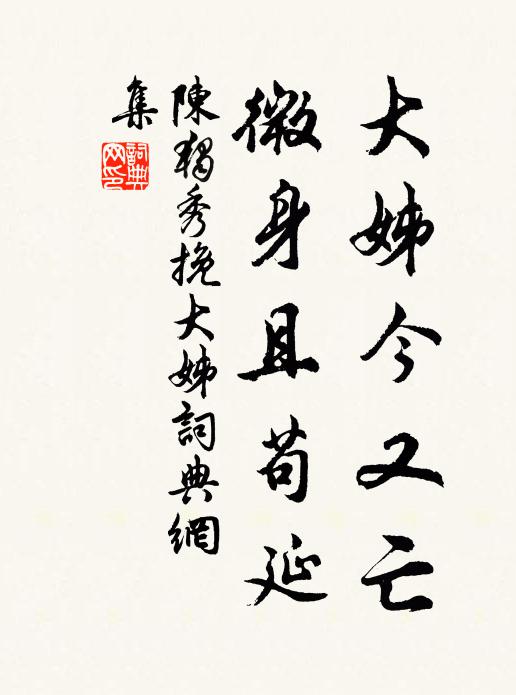 大姊今又亡
微身且苟延
陳獨秀挽大姊詞典網
集
詞典
网印